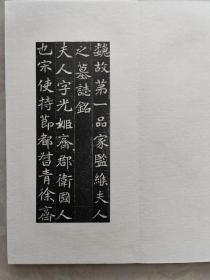 魏故第一品家監緱夫人
之墓誌銘
夫人字光姬齊郡衛國人
也宋使持節都督青徐齊